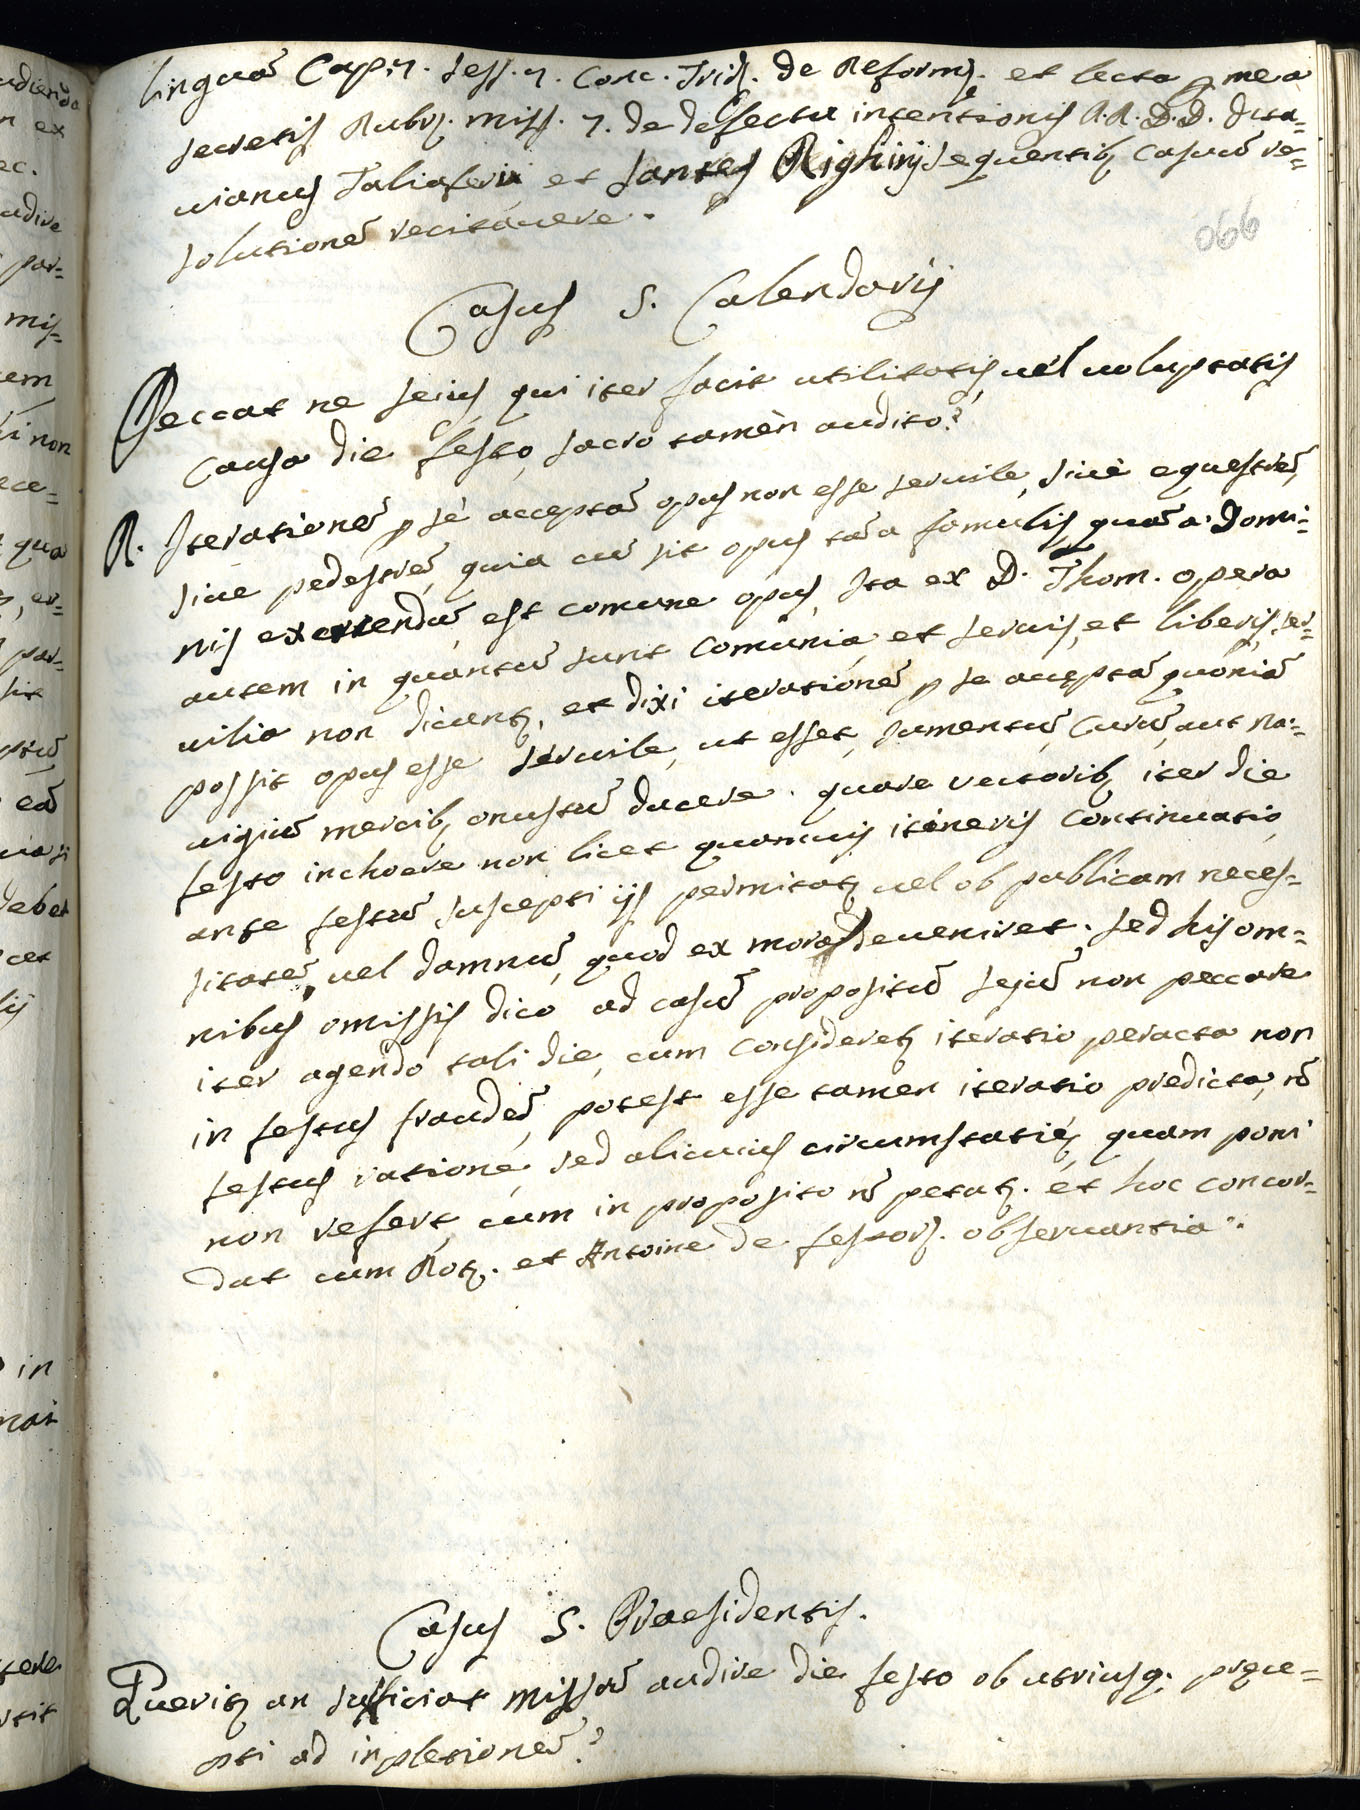 linguã Capit. sess. 7. Conc. Trid. de Reform. et lecta p me a
secretis Rubr. miss. 7. de defectu intentionis R.R. D.D. Octa=
uianus Taliaferri et Santes Righinij sequentib casuũ re=
solutionẽ recitauere.
066
Casus S. Calendarij
Peccat ne seius, qui iter facit utilitatis, uel uoluptatis
causa die festo, sacro tamèn audito?
R. Iterationẽ p sè acceptã opus non esse seruile, siuè equestrẽ,
siue pedestrẽ, quia cũ sit opus tã a famulis, quã a Domi=
nis exercendũ, est comune opus, Ita ex D. Thom. opera
autem in quantũ sunt comunia et seruis, et liberis, ser=
uilia non dicunt, et dixi iterationẽ p se acceptã quoniã
possit opus esse seruile, ut esset, Iumentũ, Currũ, aut na=
uigiũ mercib onustũ ducere. quare uectorib iter die
festo inchoare non licet quamuis itineris continuatio
ante festũ suscepti ijs permitat uel ob publicam neces=
sitatẽ, uel damnũ, quod ex mora deueniret. sed his om=
nibus omissis dico ad casũ propositũ sejũ non peccare
iter agendo tali die, cum consideret iteratio peracta non
in festus fraudẽ, potest esse tamen iteratio predicta, nõ
festus ratione, sed alicuius circumstatiẽ, quam poni
non refert, cum in proposito nõ petat. et hoc concor=
dat cum Rot. et Antoine de festor. obseruantia.
Casus S. Praesidentis.
Querit an sufficiat missã audire die festo ob utriusq. prece=
pti ad inpletionẽ?